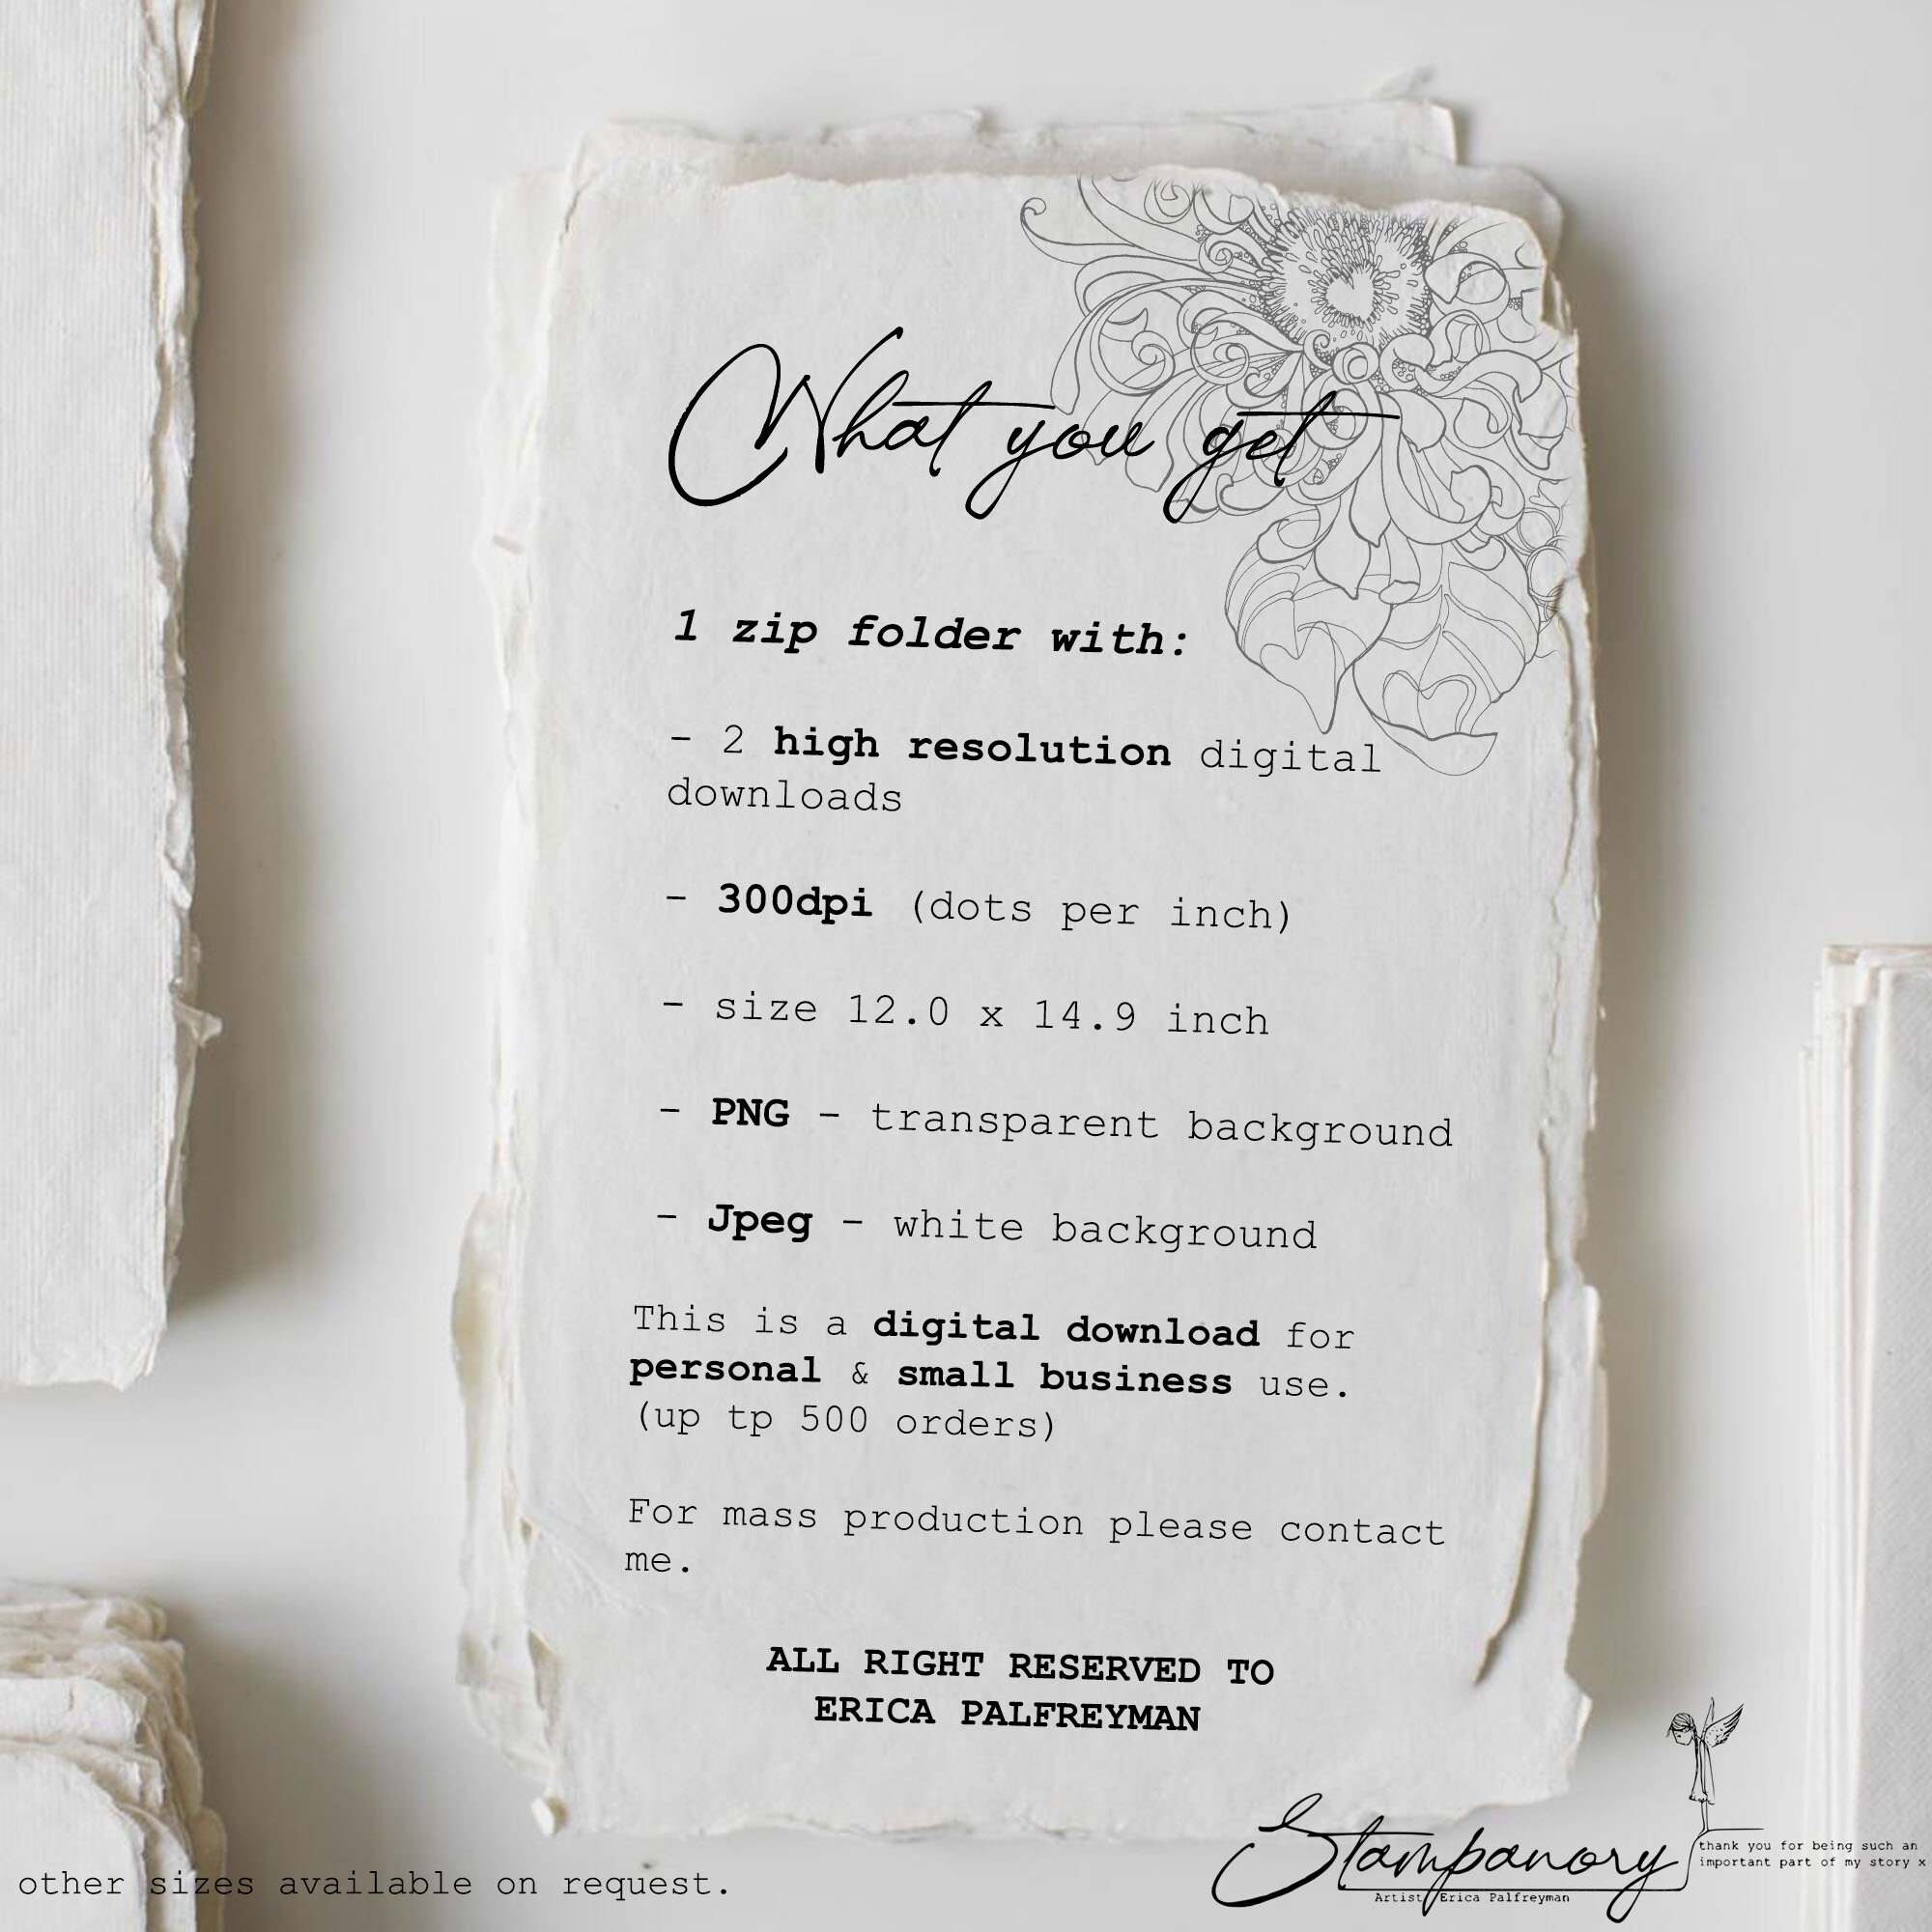 What you get
1 zip folder with:
- 2 high resolution digital
downloads
- 300dpi (dots per inch)
- size 12.0 x 14.9 inch
- PNG - transparent background
- Jpeg - white background
This is a digital download for
personal & small business use.
(up tp 500 orders)
For mass production please contact
me.
ALL RIGHT RESERVED TO
ERICA PALFREYMAN
other sizes available on request.
Stampanory
Artist Erica Palfreyman
thank you for being such an
important part of my story x